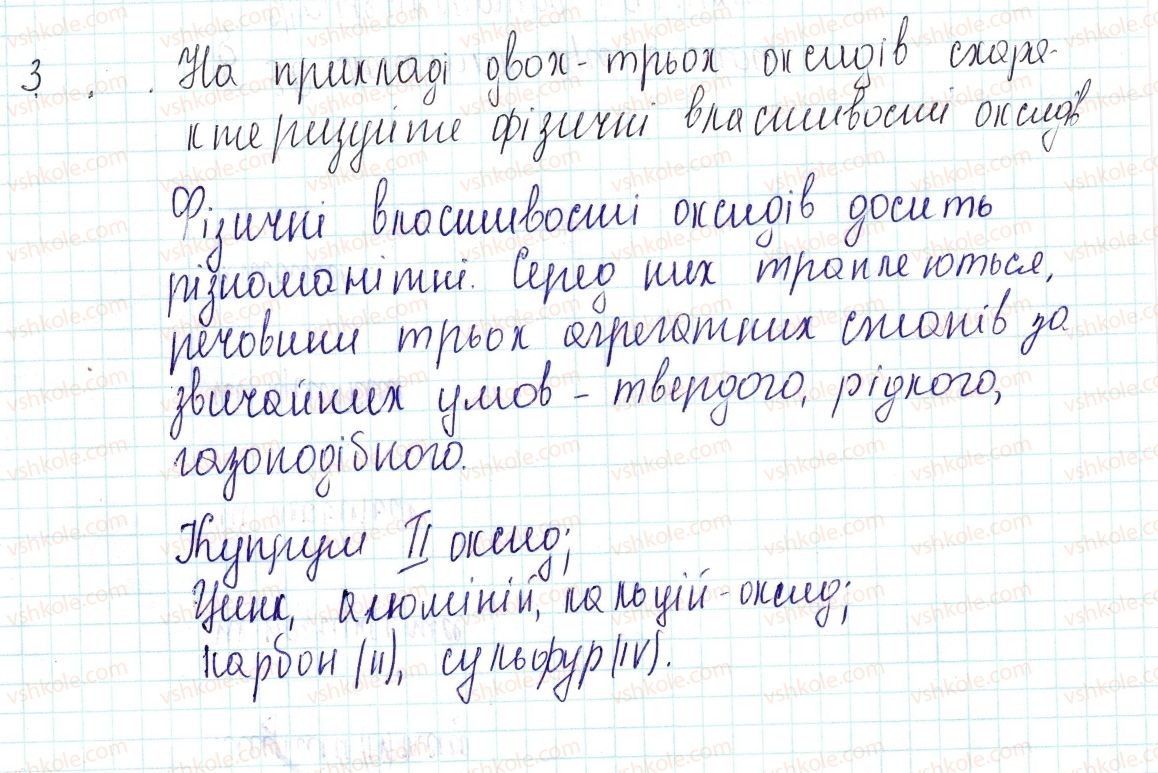 3. На прикладі двох-трьох оксидів схара-
ктеризуйте фізичні властивості оксидів
Фізичні властивості оксидів досить
різноманітні. Серед них трапляються,
речовини трьох агрегатних станів за
звичайних умов - твердого, рідкого,
газоподібного.
Купрум II оксид;
Цинк, алюміній, кальцій-оксид;
карбон (II), сульфур (IV).
vshkole.com